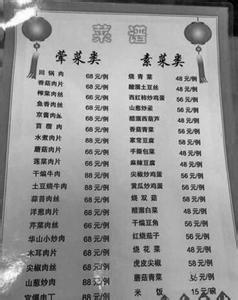 菜谱
荤菜类
回锅肉 68元/例
香菇肉片 68元/例
榨菜肉丝 68元/例
鱼香肉丝 68元/例
京酱肉丝 68元/例
苜楂肉 68元/例
水煮肉片 68元/例
蘑菇肉片 68元/例
莲菜肉片 68元/例
干煸牛肉 88元/例
土豆烧牛肉 88元/例
蒜苔肉丝 68元/例
洋葱肉片 68元/例
芹菜肉丝 68元/例
华山小炒肉 68元/例
木耳肉片 68元/例
尖椒肉丝 68元/例
山葱炒肉 68元/例
宫保肉丁 68元/例
素菜类
烧青菜 48元/例
酸溜土豆丝 48元/例
西红柿炒鸡蛋 56元/例
山葱炒鸡蛋 56元/例
醋溜西葫芦 48元/例
香菇青菜 56元/例
家常豆腐 56元/例
手撕包菜 48元/例
麻辣豆腐 48元/例
尖椒炒鸡蛋 56元/例
黄瓜炒鸡蛋 56元/例
烧双菇 56元/例
醋溜白菜 48元/例
干煸豆角 56元/例
红烧茄子 56元/例
烧花菜 48元/例
虎皮尖椒 56元/例
蘑菇青菜 56元/例
米饭 15元/碗